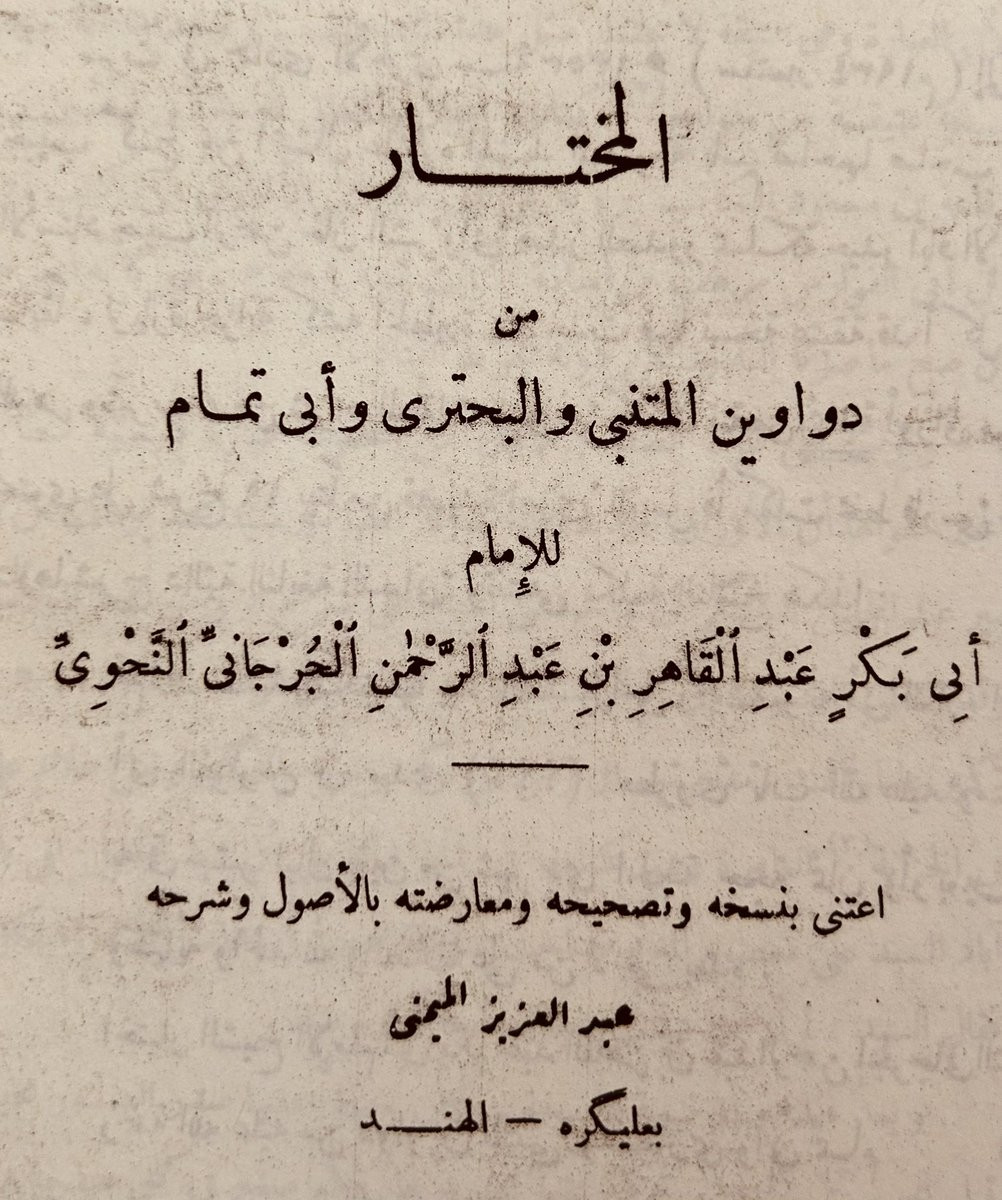 المختار
من
دواوين المتنبي والبحترى وأبى تمام
للإمام
أَبِى بَكْرٍ عَبْدِ ٱلْقَاهِرِ بْنِ عَبْدِ ٱلرَّحْمٰنِ ٱلْجُرْجَانىِّ ٱلنَّحْوِىِّ
اعتنى بنسخه وتصحيحه ومعارضته بالأصول وشرحه
عبد العزيز الميمنى
بعليگره – الهند